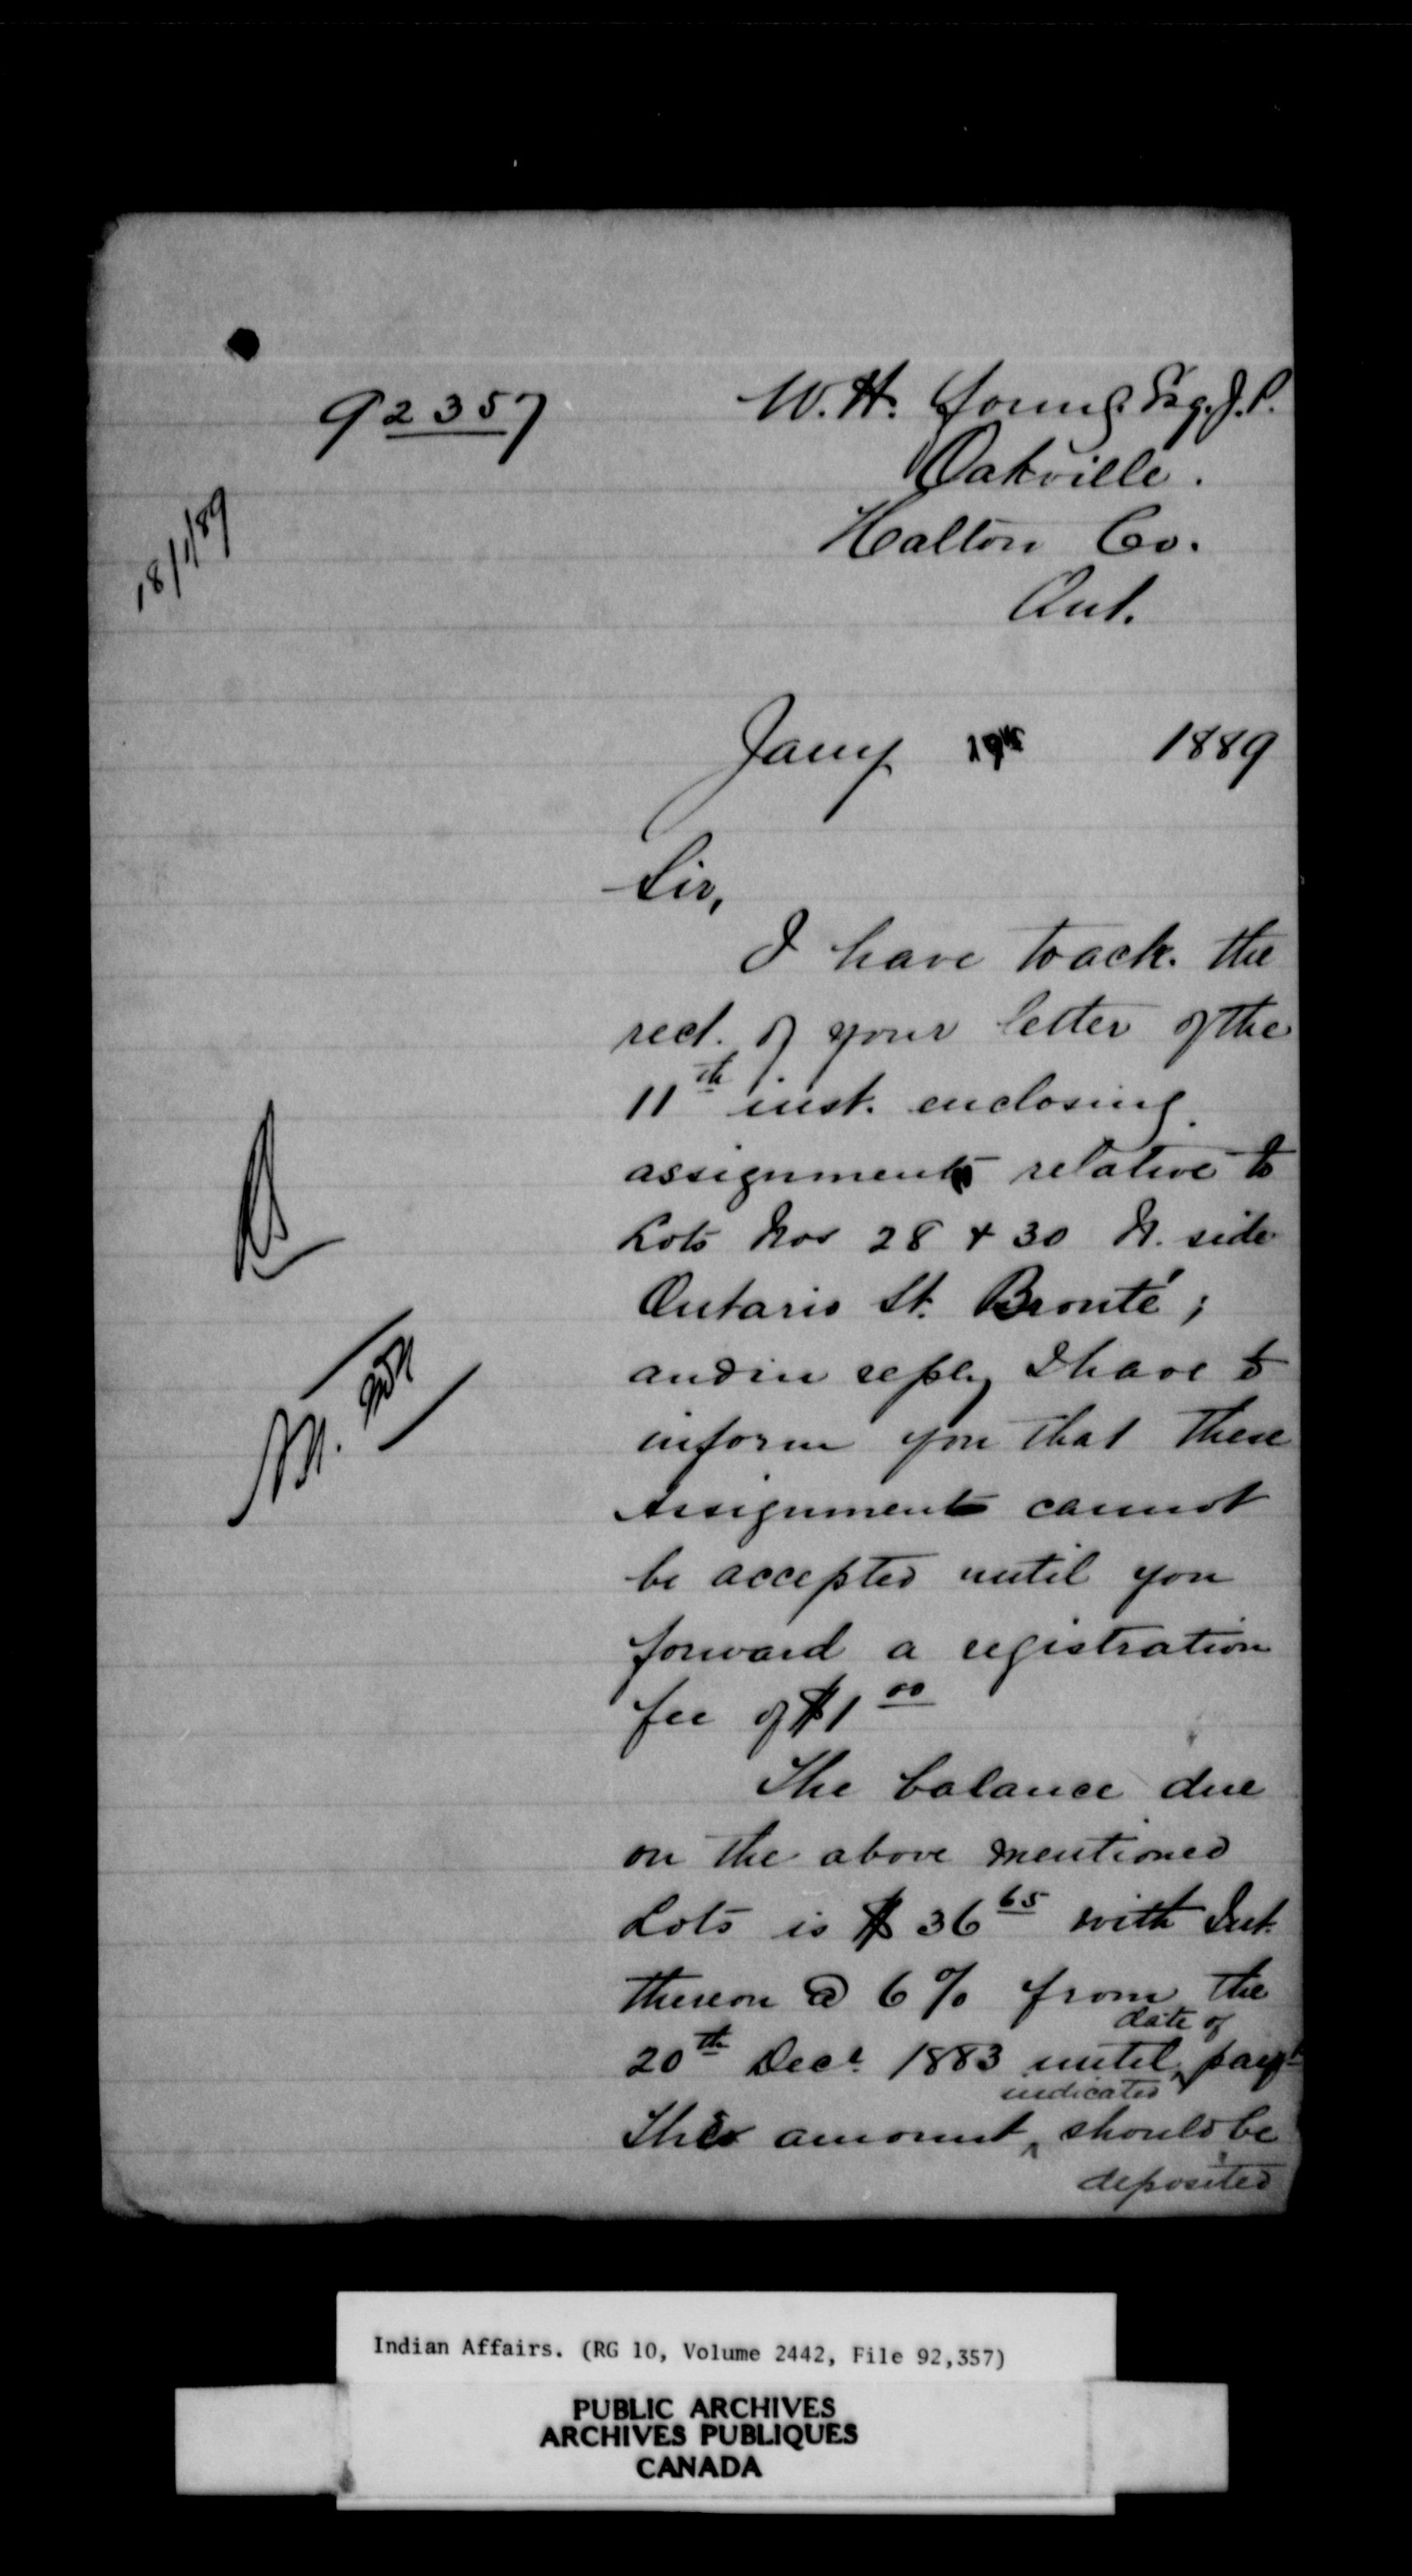 92357
W. H. Young Esq. J. P.
Oakville.
Halton Co.
Ont.
18/1/89
Jany 19th 1889
Sir,
I have to ack. the
rect. of your letter of the
11th inst. enclosing
assignments relative to
Lots Nos 28 & 30 N. side
Ontario St. Bronté;
and in reply I have to
inform you that these
Assignments cannot
be accepted until you
forward a registration
fee of $1 00
The balance due
on the above mentioned
Lots is $ 36 65 with Int.
thereon @ 6% from the
date of
20th Decr 1883 until payt
indicated
This amount should be
deposited
Indian Affairs. (RG 10, Volume 2442, File 92,357)
PUBLIC ARCHIVES
ARCHIVES PUBLIQUES
CANADA